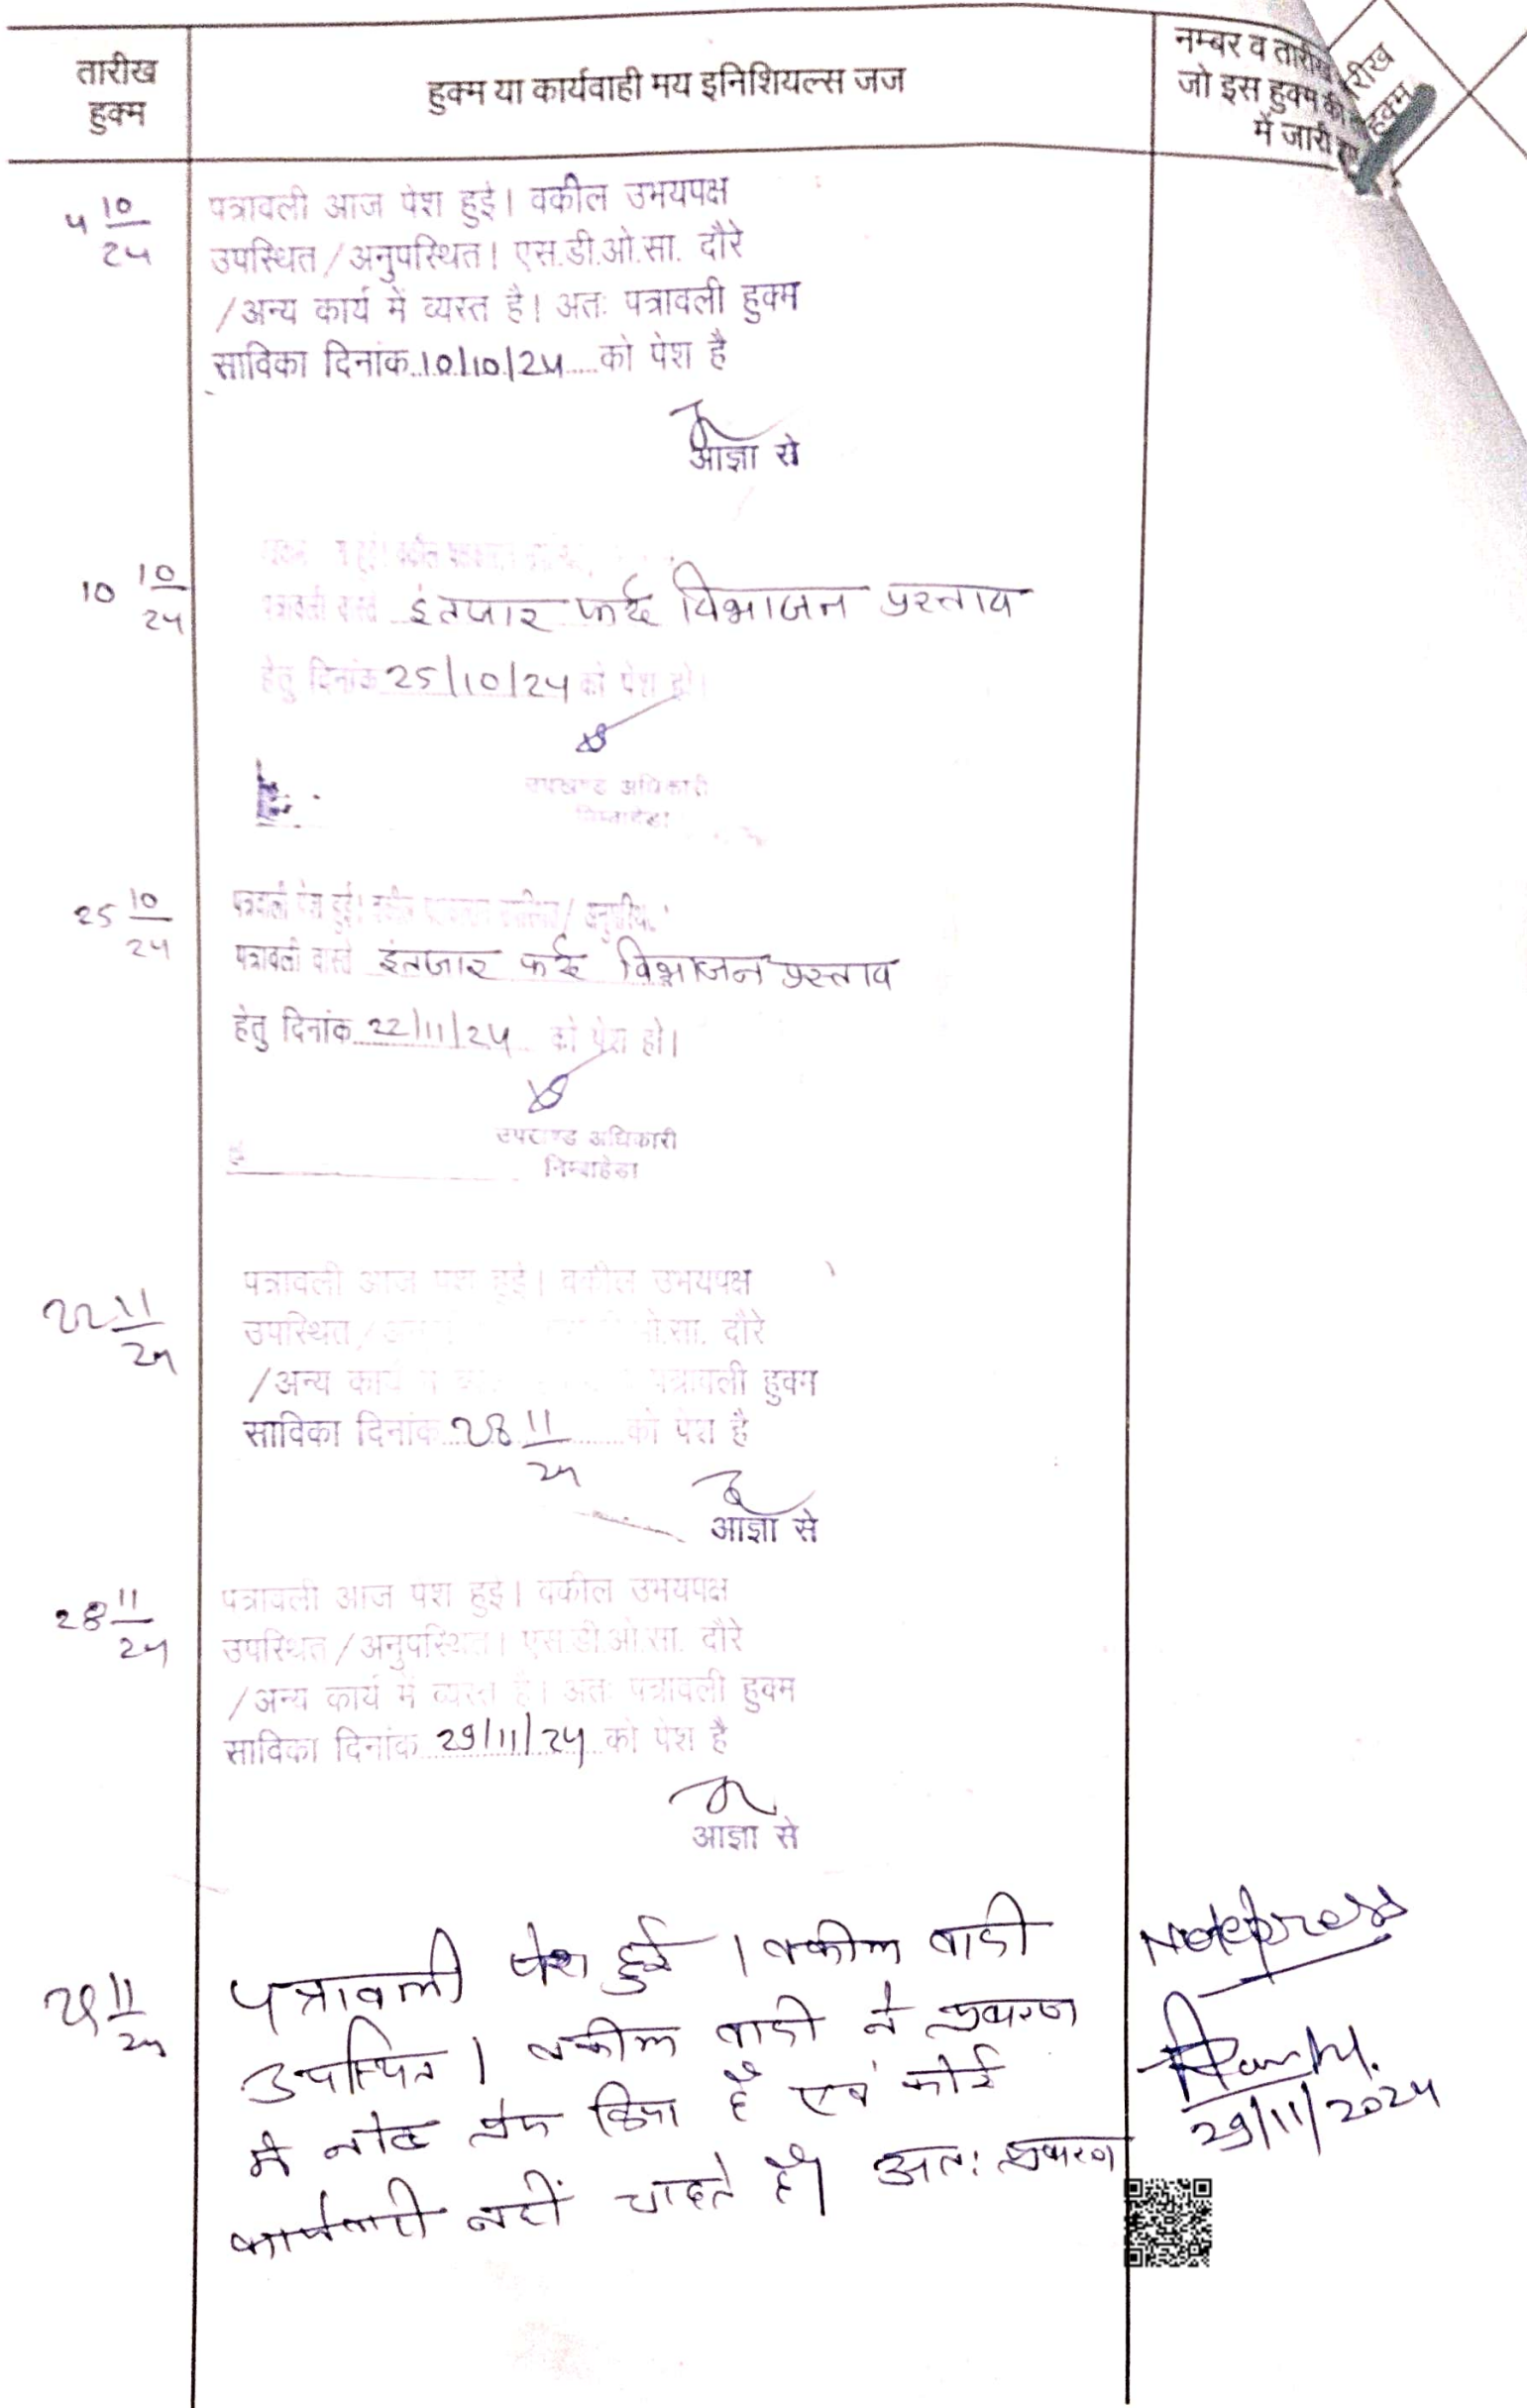 तारीख
हुक्म
हुक्म या कार्यवाही मय इनिशियल्स जज
नम्बर व तारीख
जो इस हुक्म की
में जारी हुए
रीख
हुक्म
4 10/24
पत्रावली आज पेश हुई। वकील उभयपक्ष
उपस्थित/अनुपस्थित। एस.डी.ओ.सा. दौरे
/अन्य कार्य में व्यस्त है। अतः पत्रावली हुक्म
साविका दिनांक 10/10/24 को पेश है
आज्ञा से
10 10/24
हुई। वकील
पत्रावली वास्ते इंतजार फर्द विभाजन प्रस्ताव
हेतु दिनांक 25/10/24 को पेश हो।
उपखण्ड अधिकारी
निम्बाहेडा
25 10/24
पत्रावली पेश हुई। वकील
पत्रावली वास्ते इंतजार फर्द विभाजन प्रस्ताव
हेतु दिनांक 22/11/24 को पेश हो।
उपखण्ड अधिकारी
निम्बाहेडा
22 11/24
पत्रावली आज पेश हुई। वकील उभयपक्ष
उपस्थित/ ओ.सा. दौरे
/अन्य कार्य पत्रावली हुक्म
साविका दिनांक 28 11/24 को पेश है
आज्ञा से
28 11/24
पत्रावली आज पेश हुई। वकील उभयपक्ष
उपस्थित/अनुपस्थित। एस.डी.ओ.सा. दौरे
/अन्य कार्य में व्यस्त है। अतः पत्रावली हुक्म
साविका दिनांक 29/11/24 को पेश है
आज्ञा से
29 11/24
पत्रावली पेश हुई। वकील वादी
उपस्थित। वकील वादी ने प्रकरण
में नोट प्रेस किया है एवं कोई
कार्यवाही नहीं चाहते है। अतः प्रकरण
Notepress
29/11/2024